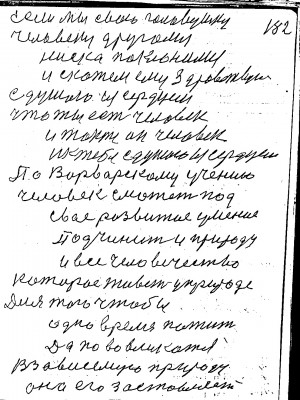 182
если мы свою головушку
человеку другому
ниска поклониму
и скажем ему Здравствуи
с душою и сердцем
что ты ест человек
и тоже он человек
и к тебе с душою и сердцем
По Варварскому учению
человек сможет под
свае развитое умение
Подчинит и природу
и все человечество
которое живет у природе
Для того чтобы
одно время пажит
Да по
В зависемую природу
она его заставляет